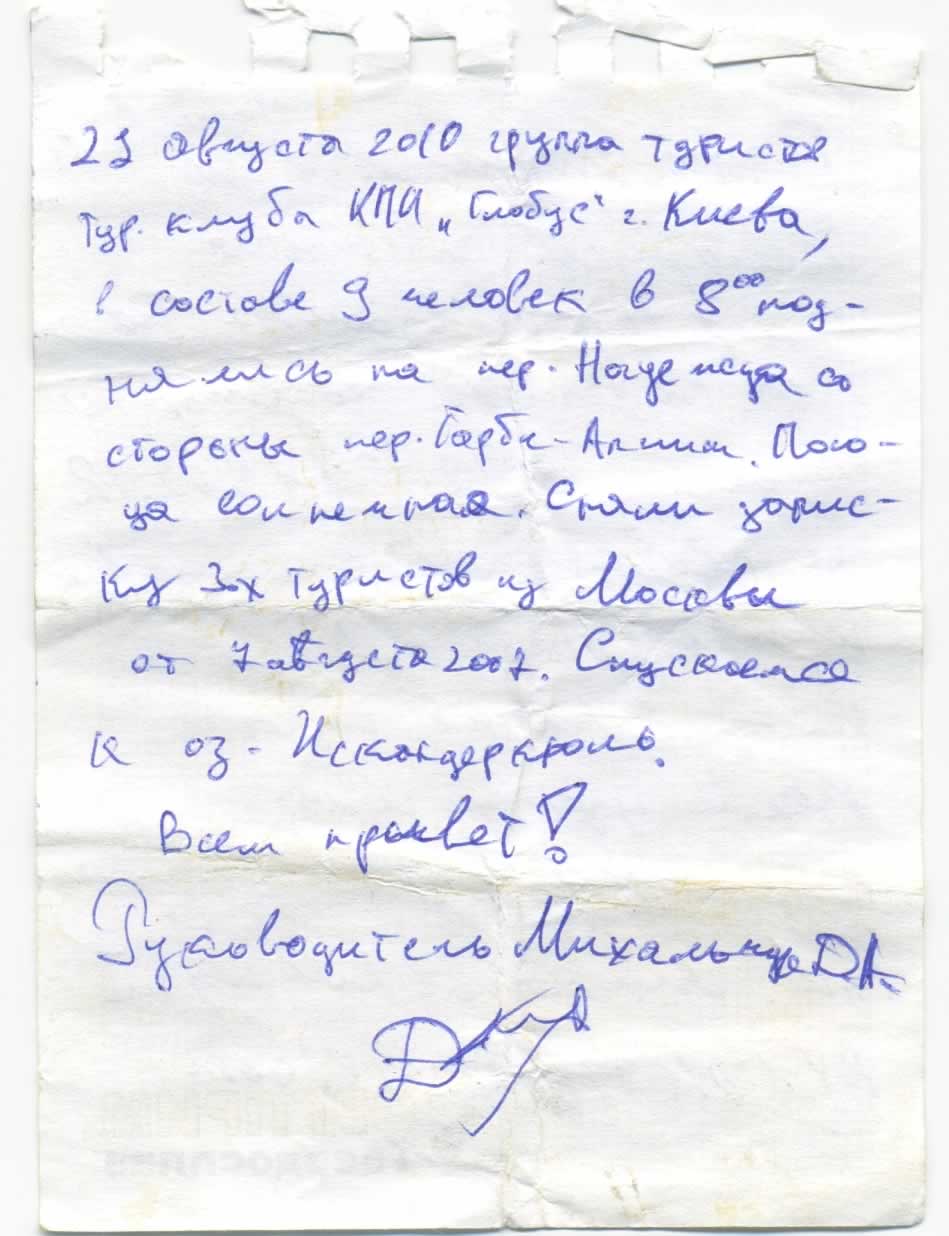 23 августа 2010 группа туристов
тур. клуба КПИ „Глобус“ г. Киева,
в составе 9 человек в 8⁰⁰ под-
нялись на пер. Надежда со
стороны пер. Пого-
да солнечная. Сняли запис-
ку 3ох туристов из Москвы
от 7 августа 2007. Спускаемся
к оз. Искандеркуль.
Всем привет!
Руководитель Д.А.